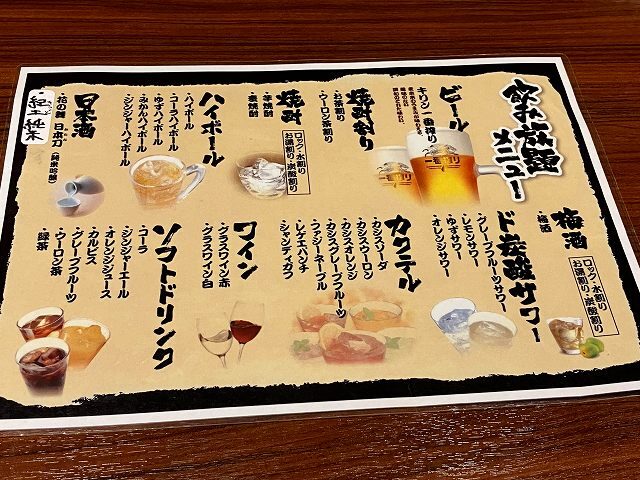 飲み放題
メニュー
ビール
キリン一番搾り
焼酎割り
・お茶割り
・ウーロン茶割り
焼酎
・芋焼酎
・麦焼酎
ロック・水割り
お湯割り・炭酸割り
ハイボール
・ハイボール
・コーラハイボール
・ゆずハイボール
・みかんハイボール
・ジンジャーハイボール
日本酒
・花の舞 日本刀(純米吟醸)
・紀土 純米
梅酒
・梅酒
ロック・水割り
お湯割り・炭酸割り
ド炭酸サワー
・グレープフルーツサワー
・レモンサワー
・ゆずサワー
・オレンジサワー
カクテル
・カシスソーダ
・カシスウーロン
・カシスオレンジ
・カシスグレープフルーツ
・ファジーネーブル
・レゲエパンチ
・シャンディガフ
ワイン
・グラスワイン赤
・グラスワイン白
ソフトドリンク
・コーラ
・ジンジャーエール
・オレンジジュース
・カルピス
・グレープフルーツ
・ウーロン茶
・緑茶
一番搾り